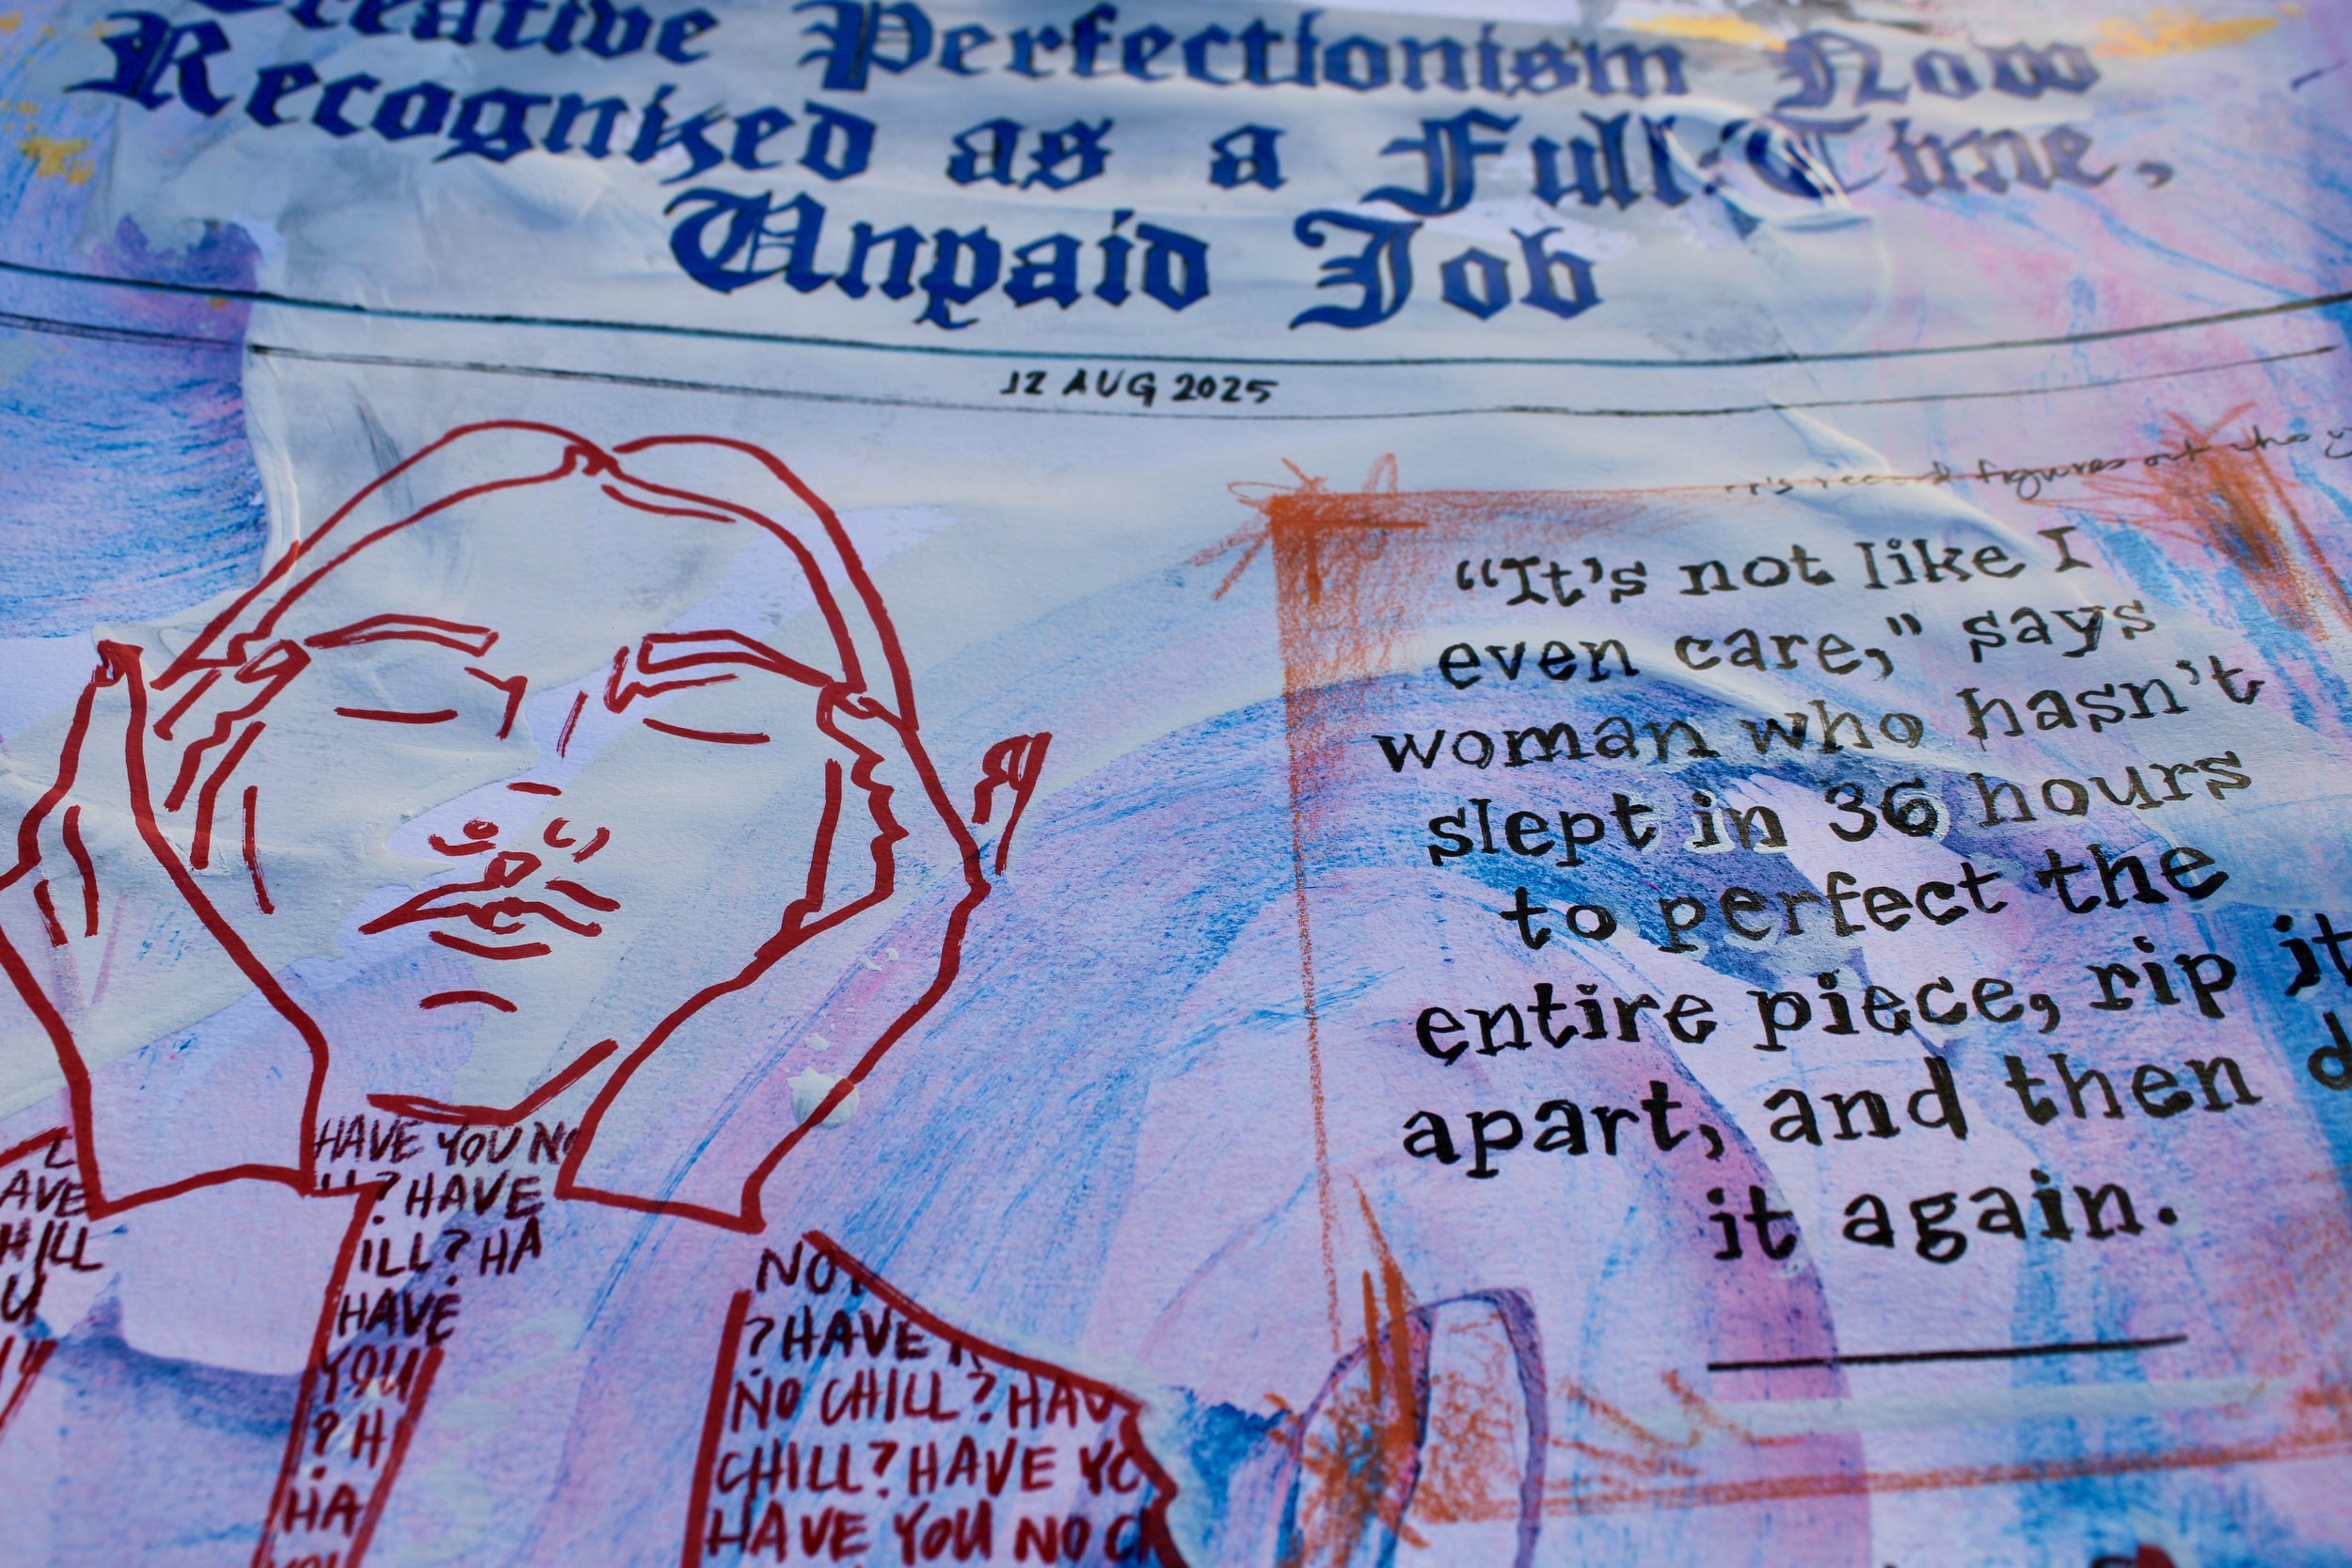 Creative Perfectionism Now
Recognized as a Full-Time,
Unpaid Job
12 AUG 2025
figures out who
“It’s not like I
even care,” says
woman who hasn’t
slept in 36 hours
to perfect the
entire piece, rip it
apart, and then
it again.
HAVE YOU NO
? HAVE
ILL? HA
HAVE
YOU
? H
HA
YOU
AVE
HILL
U
NO
? HAVE
NO CHILL? HAV
CHILL? HAVE YO
HAVE YOU NO C